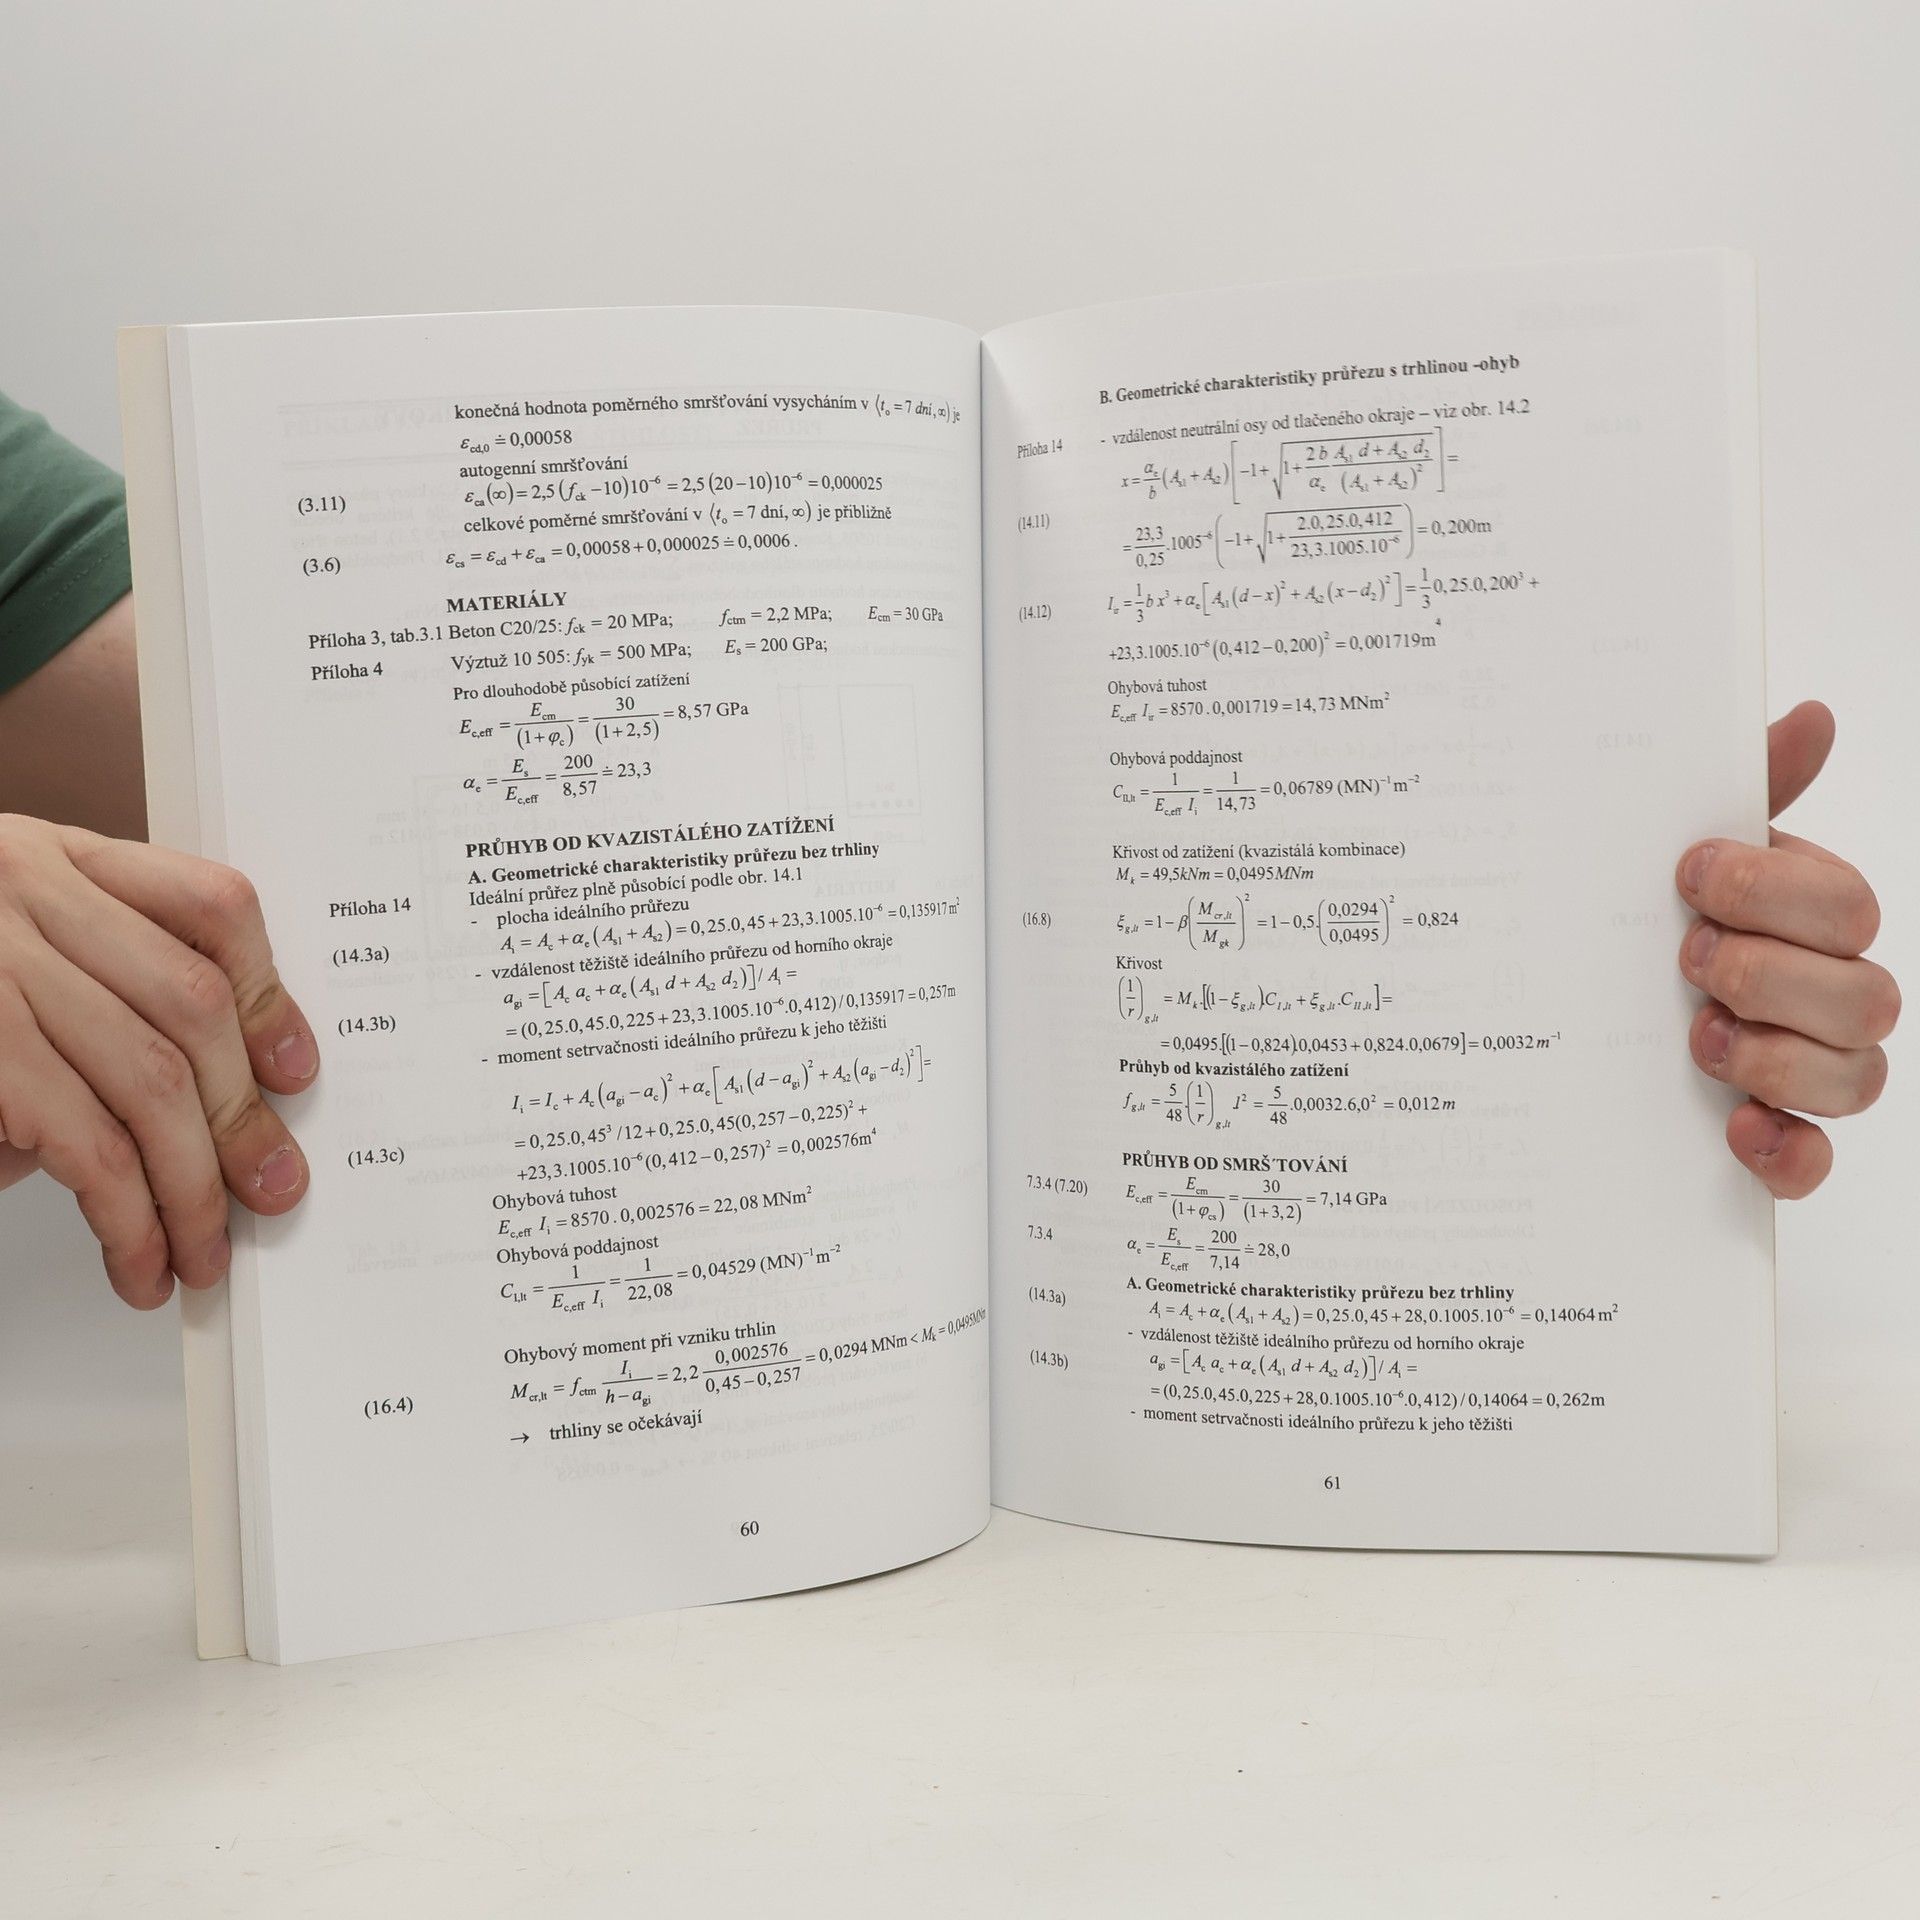 konečná hodnota poměrného smršťování vysycháním v ⟨t₀ = 7 dní, ∞) je
ε_cd,0 ≐ 0,00058
autogenní smršťování
(3.11) ε_ca(∞) = 2,5(f_ck −10)10⁻⁶ = 2,5(20−10)10⁻⁶ = 0,000025
celkové poměrné smršťování v ⟨t₀ = 7 dní, ∞) je přibližně
(3.6) ε_cs = ε_cd + ε_ca = 0,00058+0,000025 ≐ 0,0006 .
MATERIÁLY
Příloha 3, tab.3.1 Beton C20/25: f_ck = 20 MPa; f_ctm = 2,2 MPa; E_cm = 30 GPa
Příloha 4 Výztuž 10 505: f_yk = 500 MPa; E_s = 200 GPa;
Pro dlouhodobě působící zatížení
E_c,eff = E_cm/(1+φ_c) = 30/(1+2,5) = 8,57 GPa
α_e = E_s/E_c,eff = 200/8,57 ≐ 23,3
PRŮHYB OD KVAZISTÁLÉHO ZATÍŽENÍ
A. Geometrické charakteristiky průřezu bez trhliny
Příloha 14 Ideální průřez plně působící podle obr. 14.1
- plocha ideálního průřezu
(14.3a) A_i = A_c + α_e(A_s1 + A_s2) = 0,25.0,45 + 23,3.1005.10⁻⁶ = 0,135917m²
- vzdálenost těžiště ideálního průřezu od horního okraje
a_gi = [A_c a_c + α_e(A_s1 d + A_s2 d_2)]/ A_i =
(14.3b) = (0,25.0,45.0,225 + 23,3.1005.10⁻⁶.0,412)/0,135917 = 0,257m
- moment setrvačnosti ideálního průřezu k jeho těžišti
I_i = I_c + A_c(a_gi − a_c)² + α_e[A_s1(d − a_gi)² + A_s2(a_gi − d_2)²] =
= 0,25.0,45³ /12 + 0,25.0,45(0,257−0,225)² +
(14.3c) +23,3.1005.10⁻⁶(0,412−0,257)² = 0,002576m⁴
Ohybová tuhost
E_c,eff I_i = 8570 . 0,002576 = 22,08 MNm²
Ohybová poddajnost
C_I,lt = 1/(E_c,eff I_i) = 1/22,08 = 0,04529 (MN)⁻¹m⁻²
Ohybový moment při vzniku trhlin
(16.4) M_cr,lt = f_ctm I_i/(h−a_gi) = 2,2 0,002576/(0,45−0,257) = 0,0294 MNm < M_k = 0,0495MNm
→ trhliny se očekávají
60
B. Geometrické charakteristiky průřezu s trhlinou -ohyb
Příloha 14 - vzdálenost neutrální osy od tlačeného okraje – viz obr. 14.2
x = α_e/b (A_s1 + A_s2)[−1+√(1+ 2b/α_e (A_s1 d + A_s2 d_2)/(A_s1 + A_s2)²)] =
(14.11) = 23,3/0,25 .1005⁻⁶(−1+√(1+ 2.0,25.0,412/23,3.1005.10⁻⁶)) = 0,200m
(14.12) I_ir = 1/3 b x³ + α_e[A_s1(d−x)² + A_s2(x−d_2)²] = 1/3 0,25.0,200³ +
+23,3.1005.10⁻⁶(0,412−0,200)² = 0,001719m⁴
Ohybová tuhost
E_c,eff I_ir = 8570 . 0,001719 = 14,73 MNm²
Ohybová poddajnost
C_II,lt = 1/(E_c,eff I_i) = 1/14,73 = 0,06789 (MN)⁻¹m⁻²
Křivost od zatížení (kvazistálá kombinace)
M_k = 49,5kNm = 0,0495MNm
(16.8) ξ_g,lt = 1− β(M_cr,lt/M_gk)² = 1−0,5.(0,0294/0,0495)² = 0,824
Křivost
(1/r)_g,lt = M_k.[(1−ξ_g,lt)C_I,lt + ξ_g,lt.C_II,lt] =
= 0,0495.[(1−0,824).0,0453 + 0,824.0,0679] = 0,0032 m⁻¹
Průhyb od kvazistálého zatížení
f_g,lt = 5/48 .(1/r)_g,lt .l² = 5/48 .0,0032.6,0² = 0,012 m
PRŮHYB OD SMRŠ´TOVÁNÍ
7.3.4 (7.20) E_c,eff = E_cm/(1+φ_cs) = 30/(1+3,2) = 7,14 GPa
7.3.4 α_e = E_s/E_c,eff = 200/7,14 ≐ 28,0
A. Geometrické charakteristiky průřezu bez trhliny
(14.3a) A_i = A_c + α_e(A_s1 + A_s2) = 0,25.0,45 + 28,0.1005.10⁻⁶ = 0,14064 m²
- vzdálenost těžiště ideálního průřezu od horního okraje
(14.3b) a_gi = [A_c a_c + α_e(A_s1 d + A_s2 d_2)]/ A_i =
= (0,25.0,45.0,225 + 28,0.1005.10⁻⁶.0,412) / 0,14064 = 0,262m
- moment setrvačnosti ideálního průřezu k jeho těžišti
61